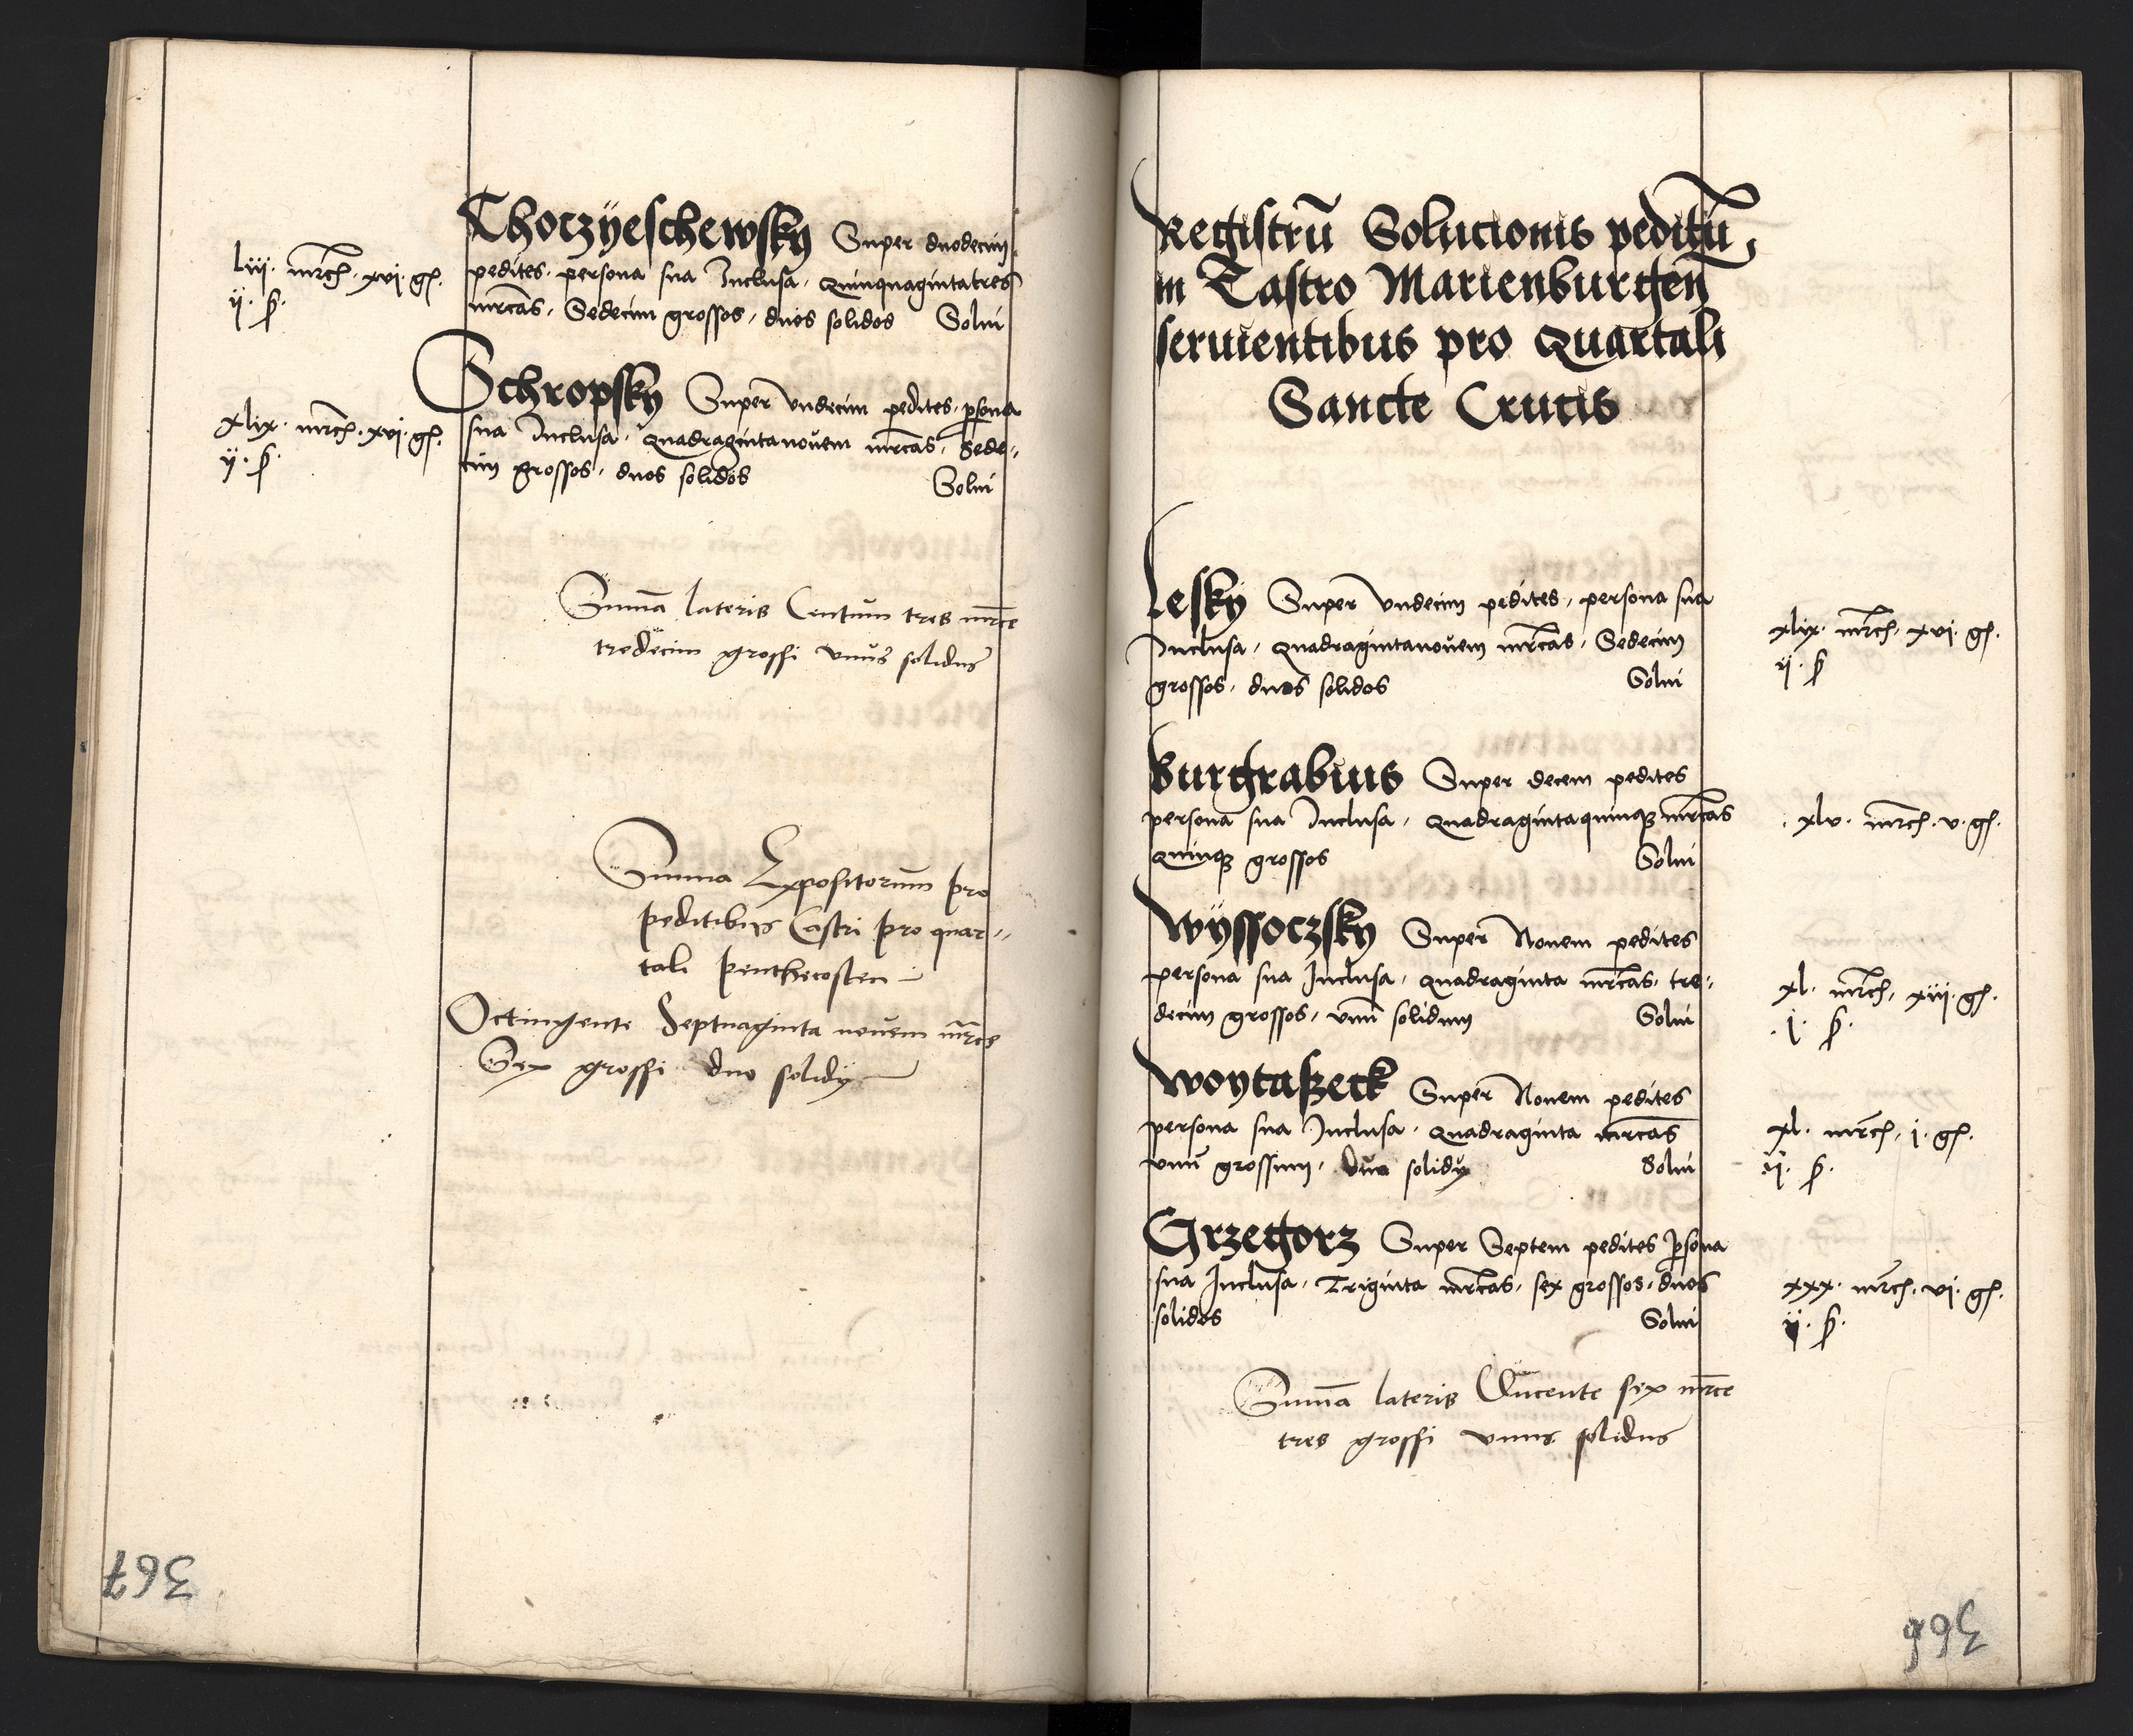 Thoczÿeschewsky Super duodecim
liii · mrch · xvi · gß ·
ii · ß ·
pedites · persona sua Inclusa · Quinquagintatres
mrcas · Sedecim grossos · duos solidos Solui
Schropsky Super Vndecim pedites · psona
xlix · mrch · xvi · gß ·
ij · ß ·
sua Inclusa · Quadragintanouem mrcas · Sede-
cim grossos · duos solidos Solui
Suma lateris Centum tres mrce
tredecim grossi vnus solidus
Summa Expositorum pro
peditibus Castri pro quar-
tali penthecosten
Octingente Septuaginta nouem mrce
Sex grossi duo solidy
367
Registrū Solucionis peditū
in Castro Marienburgen̄
seruientibus pro Quartali
Sancte Crucis
Lesky Super Vndecim pedites · persona sua
Inclusa · Quadragintanouem mrcas · Sedecim
grossos · duos solidos Solui
xlix · mrch · xvi · gß ·
ij · ß
Burgrabius Super decem pedites
persona sua Inclusa · Quadragintaquinqz mrcas
Quinqz grossos Solui
· xlv · mrch · v · gß ·
Wÿssoczsky Super Nouem pedites
persona sua Inclusa · Quadraginta mrcas · tre-
decim grossos · vnū solidum Solui
xl · mrch · xiii · gß ·
· j · ß ·
Woytaßeck Super Nouem pedites
persona sua Inclusa · Quadraginta mrcas
vnū grossum · duo solidy Solui
xl · mrch · j · gß ·
ij · ß ·
Grzegorz Super Septem pedites psona
sua Inclusa · Triginta mrcas · sex grossos · duos
solidos Solui
xxx · mrch · vi · gß ·
ij · ß ·
Suma lateris Ducente sex mrce
tres grossi vnus solidus